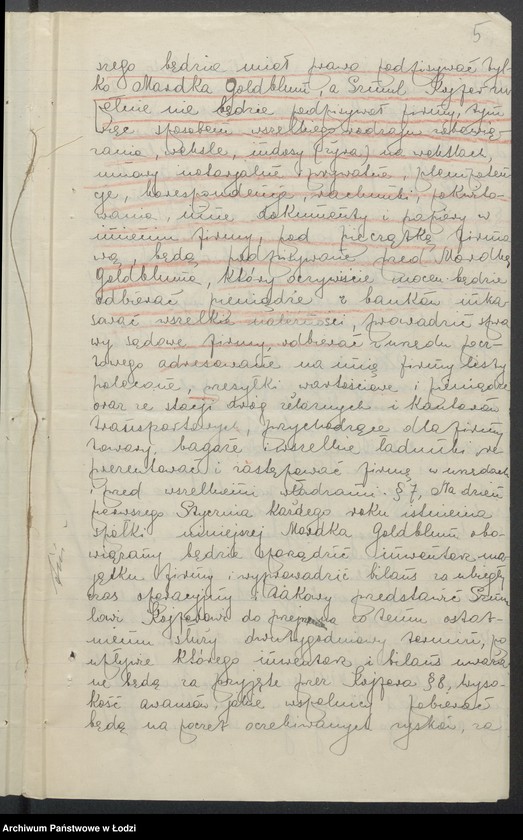 5
szego będzie miał prawo podpisywać tyl-
ko Mardka Goldblum, a Szmul Kojfer
nie będzie podpisywał firmy, tym
więc sposobem wszelkiego rodzaju zobowią-
zania, weksle, indosy (żyra) na wekslach,
umowy notarjalne i prywatne, plenipoten-
cje, korespondencje, rachunki, pokwito-
wania, inne dokumenty i papiery w
imieniu firmy, pod pieczątką firmo-
wą, będą podpisywane przed Mordkę
Goldbluma, który oczywiście mocen będzie
odbierać pieniądze z banków inka-
sować wszelkie należności, prowadzić spra-
wy sądowe firmy, odbierać z urzędu pocz-
towego adresowane na imię firmy listy
polecone, przesyłki wartościowe i pieniądze
oraz ze stacji dróg żelaznych i kantorów
transportowych, przychodzące dla firmy
towary, bagaże i wszelkie ładunki, re-
prezentować i zastępować firmę w urzędach
i przed wszelkiemi władzami. § 7, Na dzień
pierwszego Stycznia każdego roku istnienia
spółki niniejszej Mordka Goldblum obo-
wiązany będzie sporządzić inwentarz ma-
jątku firmy i wyprowadzić bilans za ubiegły
czas operacyjny i takowy przedstawić Szmu-
lowi Kojferowi do przejrzenia co temu ostat-
niemu służy dwutygodniowy termin, po
upływie którego inwentarz i bilans uważa-
ne będą za przyjęte przez Kojfera § 8, Wyso-
kość awansów, jakie wspólnicy pobierać
będą na poczet oczekiwanych zysków, za
Archiwum Państwowe w Łodzi